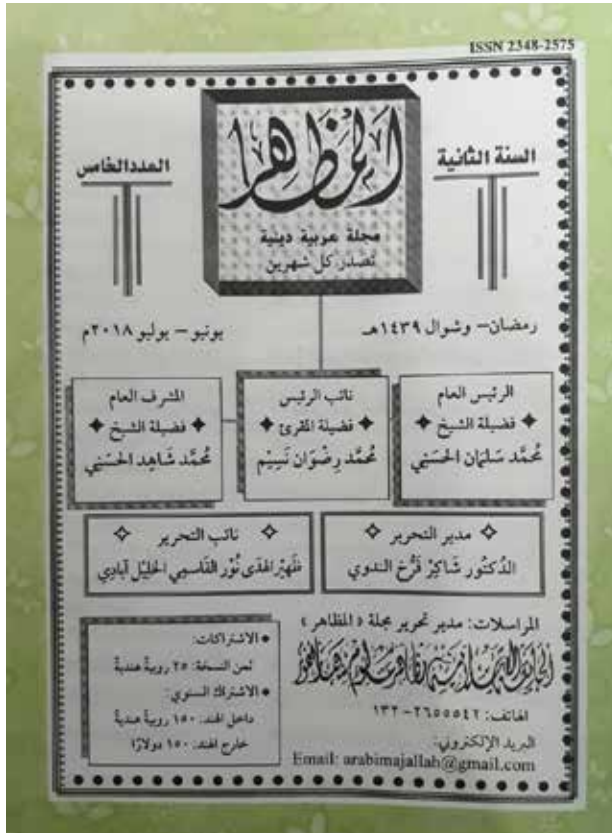 ISSN 2348-2575
السنة الثانية
المظاهر
العدد الخامس
مجلة عربية دينية
تصدر كل شهرين
رمضان - وشوال ١٤٣٩هـ
يونيو - يوليو ٢٠١٨م
الرئيس العام
فضيلة الشيخ
محمَّد سلمان الحسَني
نائب الرئيس
فضيلة المقرئ
محمَّد رِضْوَان نَسِيْم
المشرف العام
فضيلة الشيخ
محمَّد شاهِد الحسَني
مدير التحرير
الدُكتُور شاكِرْ فَرُّخ الندوي
نائب التحرير
ظَهِيْر الهُدى نُوْر القَاسِمي الخَلِيْل آبادِي
المراسلات: مدير تحرير مجلة «المظاهر»
الهاتف: ٢٦٥٥٥٤٢-١٣٢
البريد الإلكتروني:
Email: arabimajallah@gmail.com
الاشتراكات:
ثمن النسخة: ٢٥ روبيةً هنديةً
الاشتراك السنوي:
داخل الهند: ١٥٠ روبية هندية
خارج الهند: ١٥٠ دولارًا